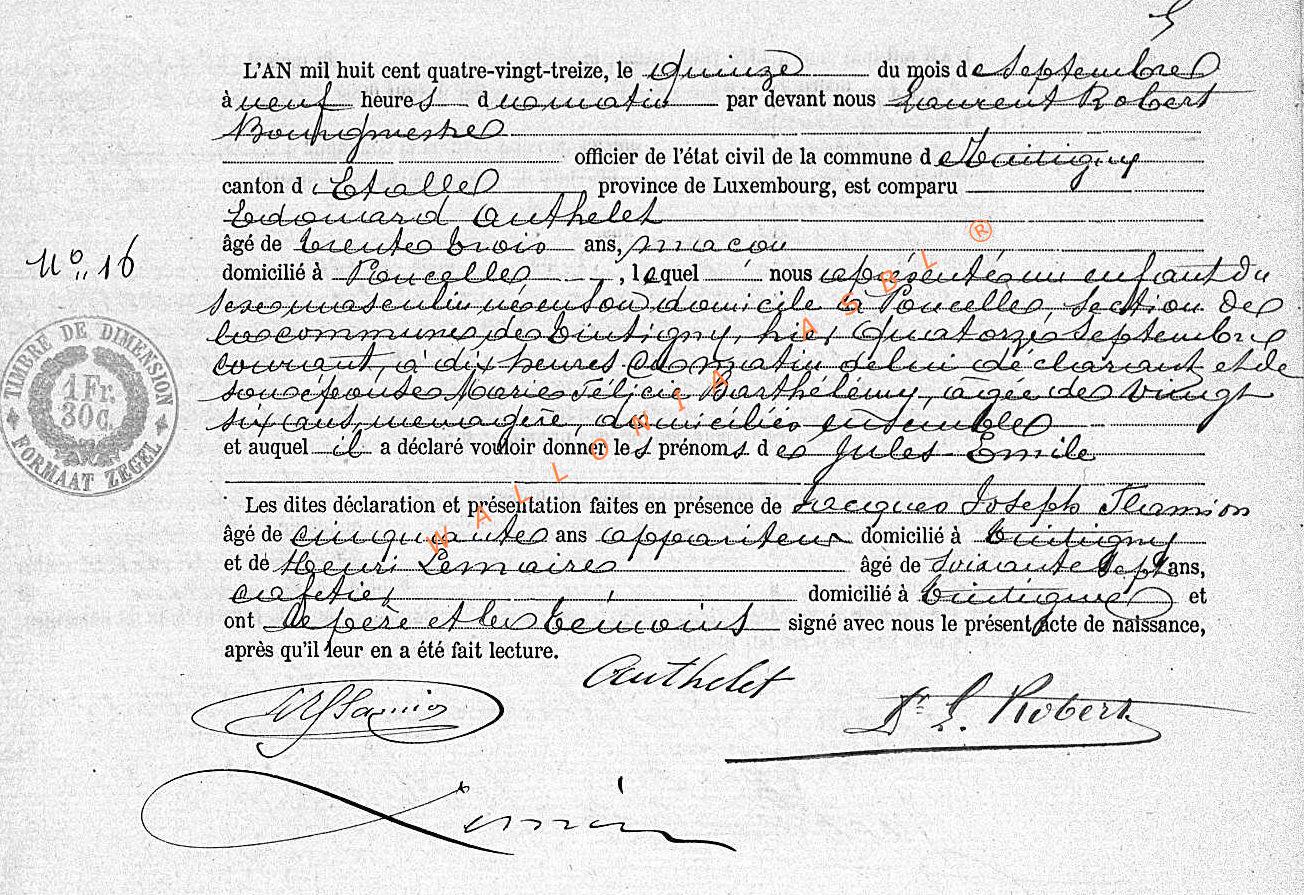 5
L'AN mil huit cent quatre-vingt-treize, le quinze du mois de septembre
à neuf heures du matin par devant nous Laurent Robert
Bourgmestre
officier de l'état civil de la commune de Tintigny
canton d'Etalle, province de Luxembourg, est comparu
Edouard Authelet
âgé de trente trois ans, maçon
N° 16
domicilié à Poncelle, lequel nous a présenté un enfant du
sexe masculin né en son domicile à Poncelle, section de
la commune de Tintigny, hier, quatorze septembre
courant, à dix heures du matin de lui déclarant et de
son épouse Marie Félicie Barthélémy, âgée de vingt
six ans, menagère, domiciliés ensemble
et auquel il a déclaré vouloir donner les prénoms de Jules Emile
Les dites déclaration et présentation faites en présence de Jacques Joseph
âgé de cinquante ans appariteur domicilié à Tintigny
et de Henri Lemaire âgé de soixante sept ans,
cafetier domicilié à Tintigny et
ont le père et les témoins signé avec nous le présent acte de naissance,
après qu'il leur en a été fait lecture.
Authelet
Dr L. Robert
TIMBRE DE DIMENSION
1 Fr.
30 c.
FORMAAT ZEGEL
WALLONIA ASBL ®